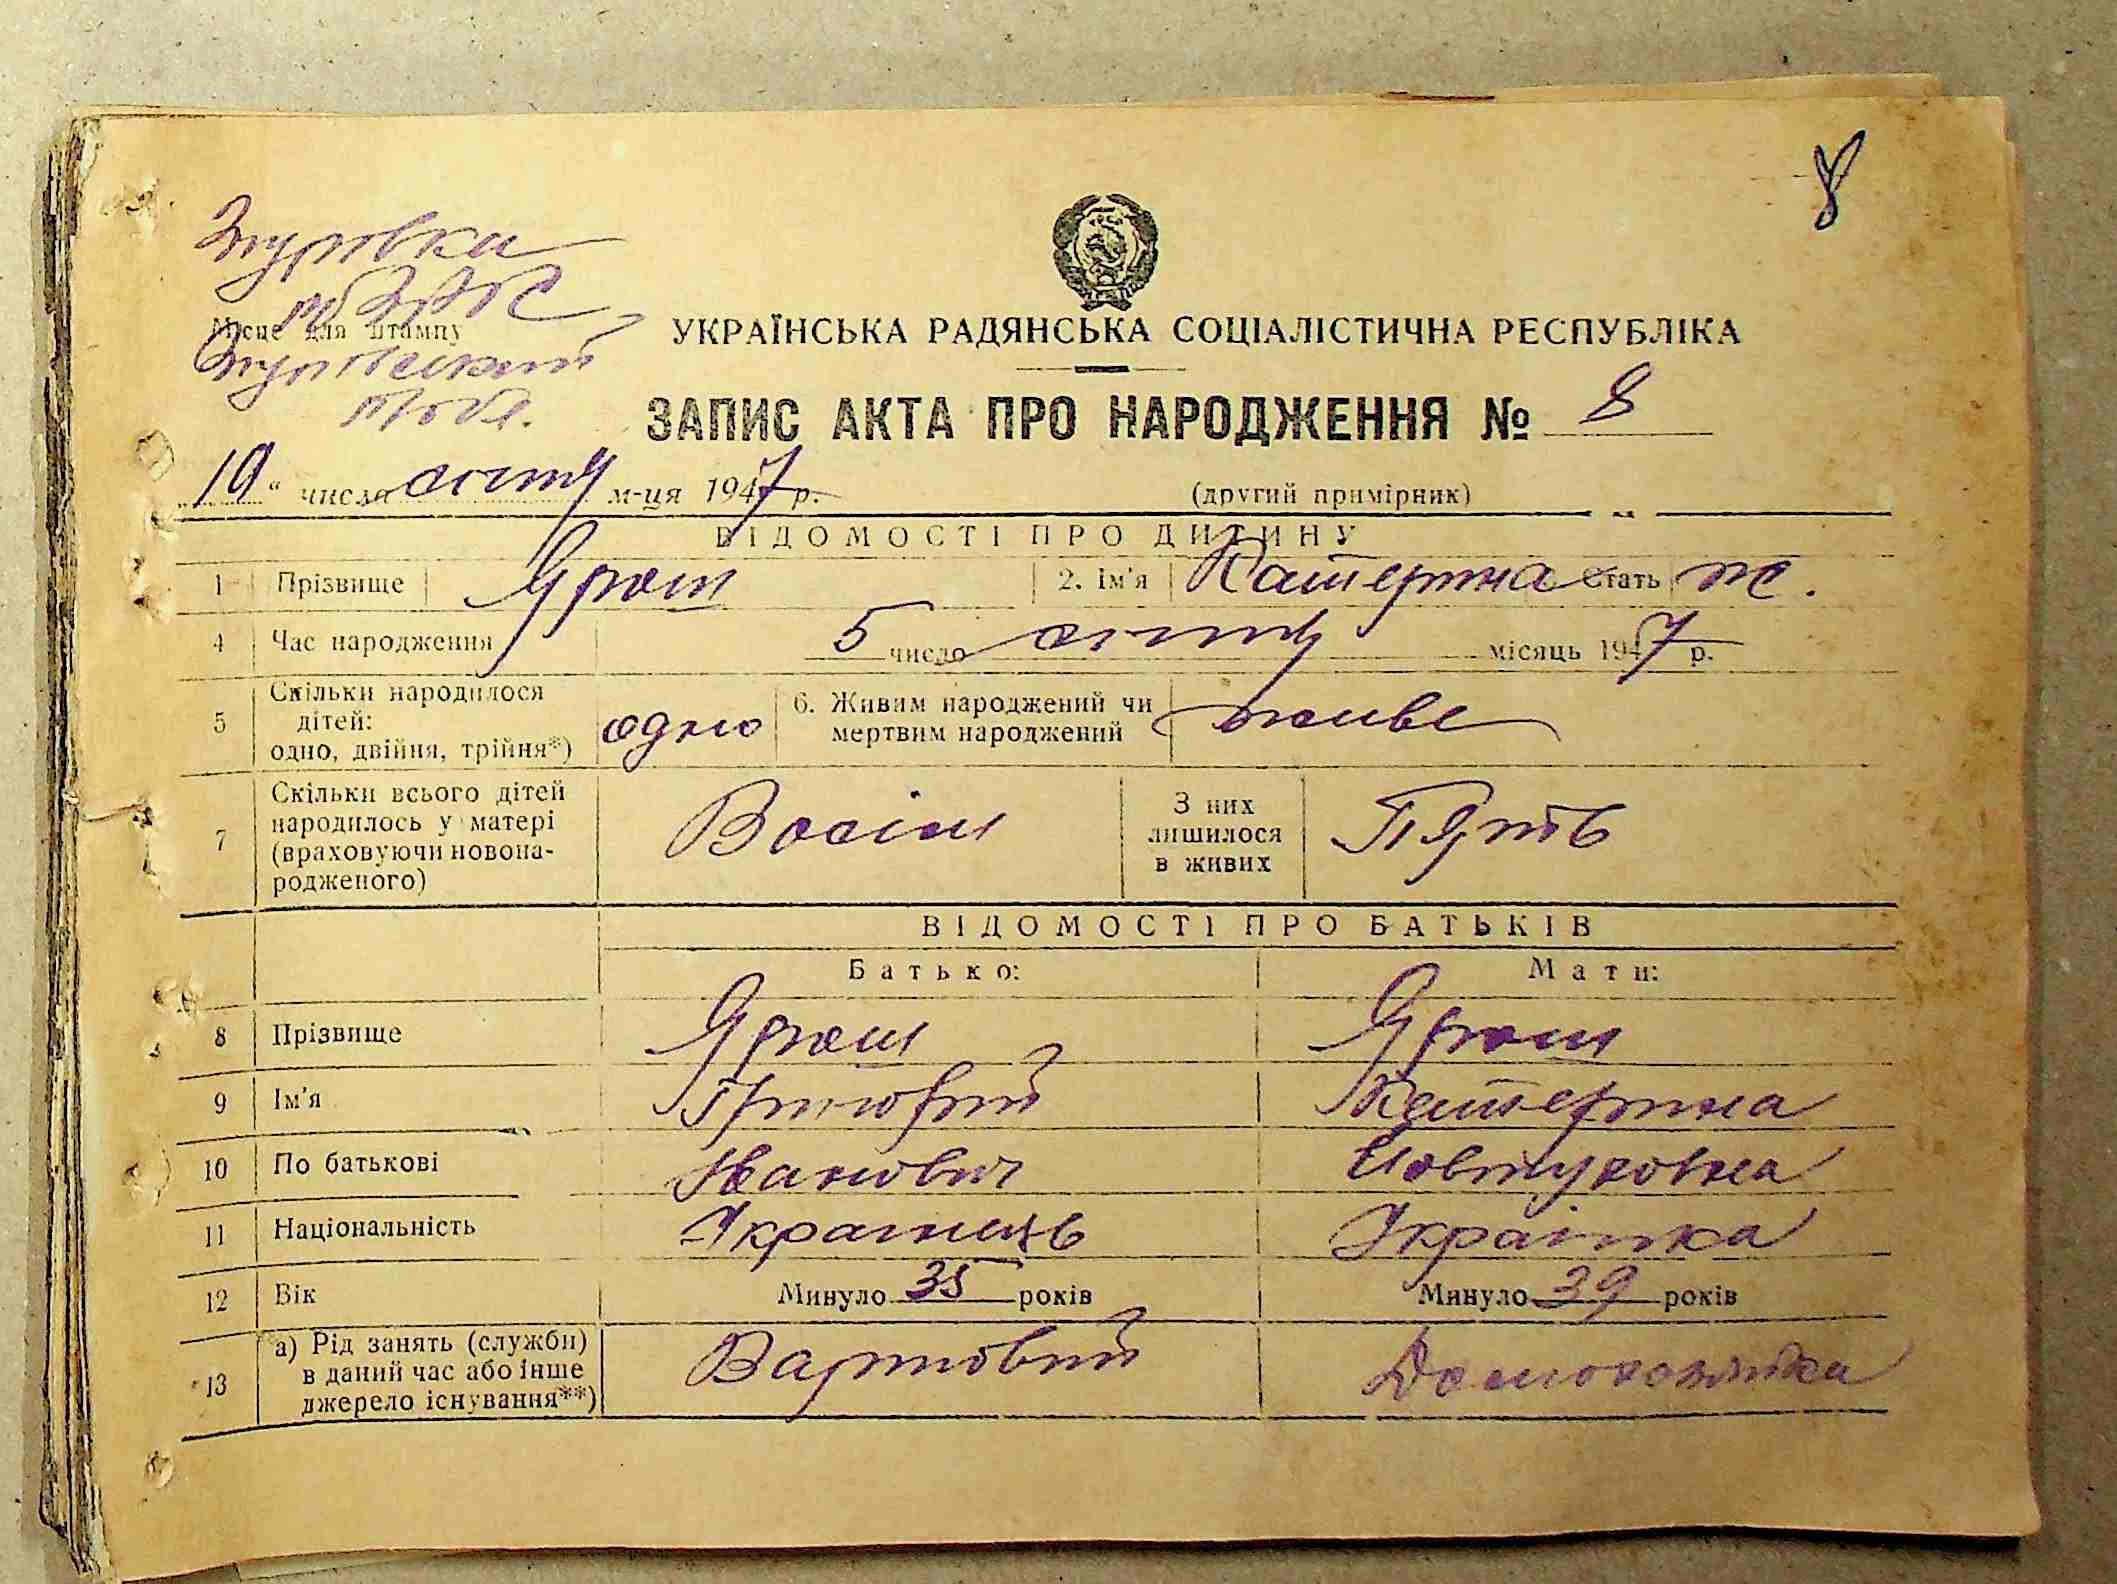 8
Згуровка
рб ЗАГС
Місце для штампу
Згуровский
УКРАЇНСЬКА РАДЯНСЬКА СОЦІАЛІСТИЧНА РЕСПУБЛІКА
ЗАПИС АКТА ПРО НАРОДЖЕННЯ № 8
19 " число м-ця 1947 р. (другий примірник)
ВІДОМОСТІ ПРО ДИТИНУ
1 Прізвище Ярош 2. Ім'я Катерина Стать ж.
4 Час народження 5 число місяць 1947 р.
5 Скільки народилося дітей: одно, двійня, трійня*) одно 6. Живим народжений чи мертвим народжений живе
7 Скільки всього дітей народилось у матері (враховуючи новонародженого) Восім З них лишилося в живих Пять
ВІДОМОСТІ ПРО БАТЬКІВ
Батько: Мати:
8 Прізвище Ярош Ярош
9 Ім'я Григорий Катерина
10 По батькові Іванович Човтуховна
11 Національність Українець Українка
12 Вік Минуло 35 років Минуло 39 років
13 а) Рід занять (служби) в даний час або інше джерело існування**) Вартовий Домохозяйка